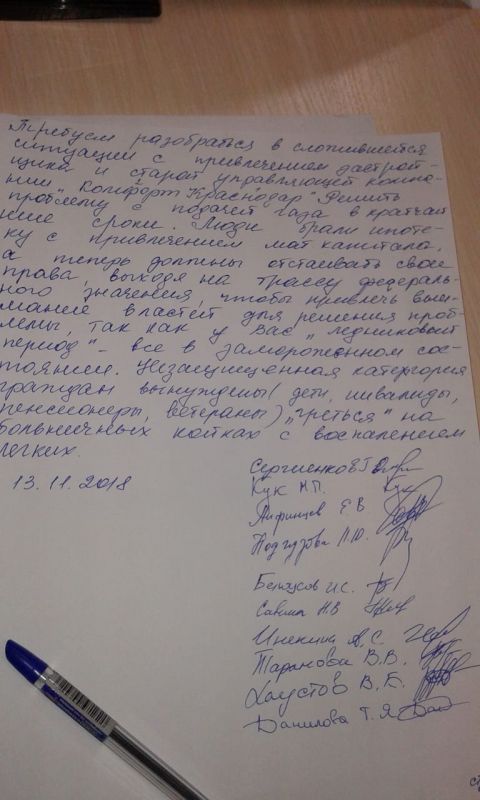 Требуем разобраться в сложившейся
ситуации с привлечением застрой-
щика и старой управляющей компа-
нии „Комфорт Краснодар". Решить
проблему с подачей газа в кратчай
шие сроки. Люди брали ипоте-
ку с привлечением мат капитала,
а теперь должны отстаивать свои
права, выходя на трассу федераль-
ного значения, чтобы привлечь вни-
мание властей для решения проб-
лемы, так как у Вас „ледниковый
период" - все в замороженном сос-
тоянии. Незащищенная категория
граждан вынуждены (дети, инвалиды,
пенсионеры, ветераны) „греться" на
больничных койках с воспалением
легких.
13.11.2018
Сергиенков
Кук Н.П. Кук
Е.В.
Л.Ю.
Белоусов И.С.
Савина Н.В
А.С.
Таранова В.В.
Хаустов В.Б.
Данилова Т.Я.